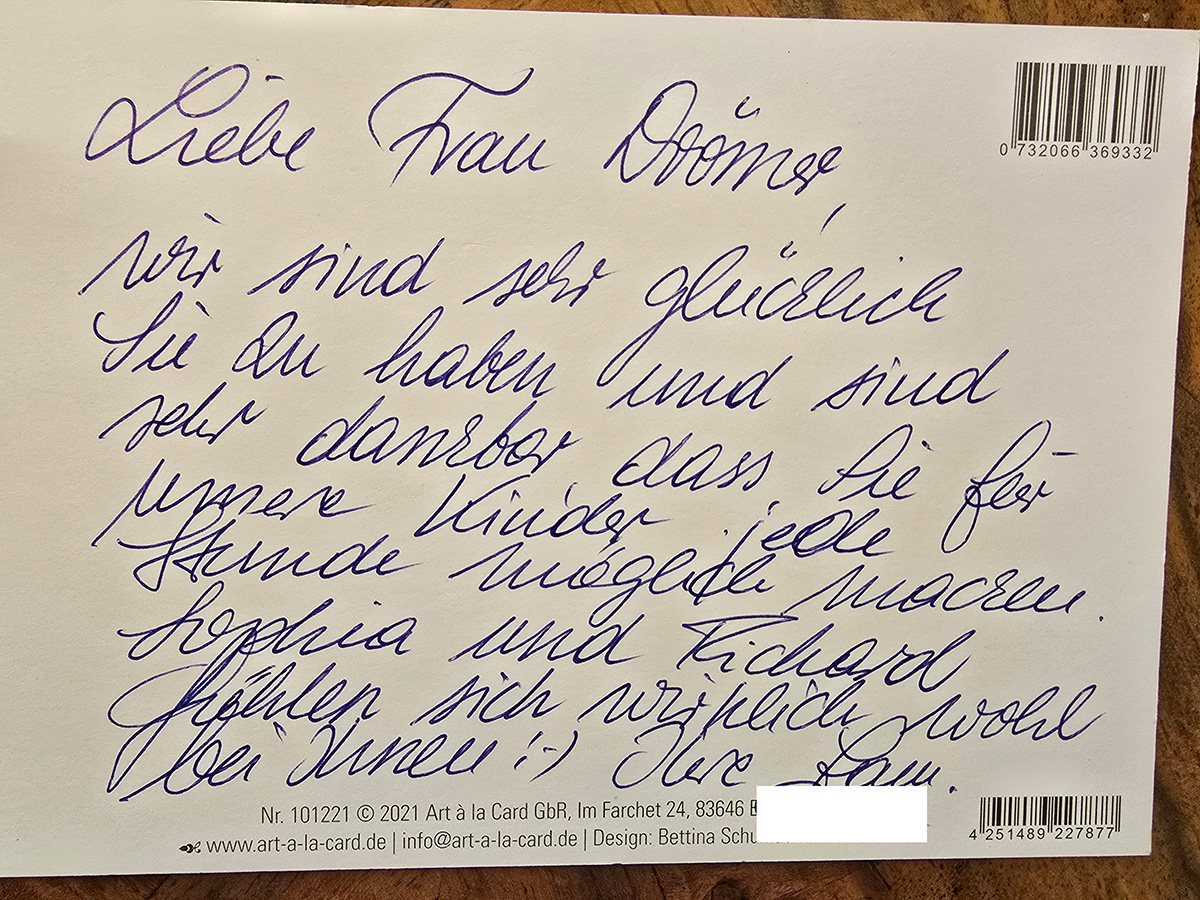 Liebe Frau Drömer,
0 732066 369332
wir sind sehr glücklich
Sie zu haben und sind
sehr dankbar, dass Sie für
unsere Kinder jede
Stunde möglich machen.
Sophia und Richard
fühlen sich wirklich wohl
bei Ihnen! :-) Ihre Fam.
Nr. 101221 © 2021 Art à la Card GbR, Im Farchet 24, 83646
www.art-a-la-card.de | info@art-a-la-card.de | Design: Bettina
4 251489 227877